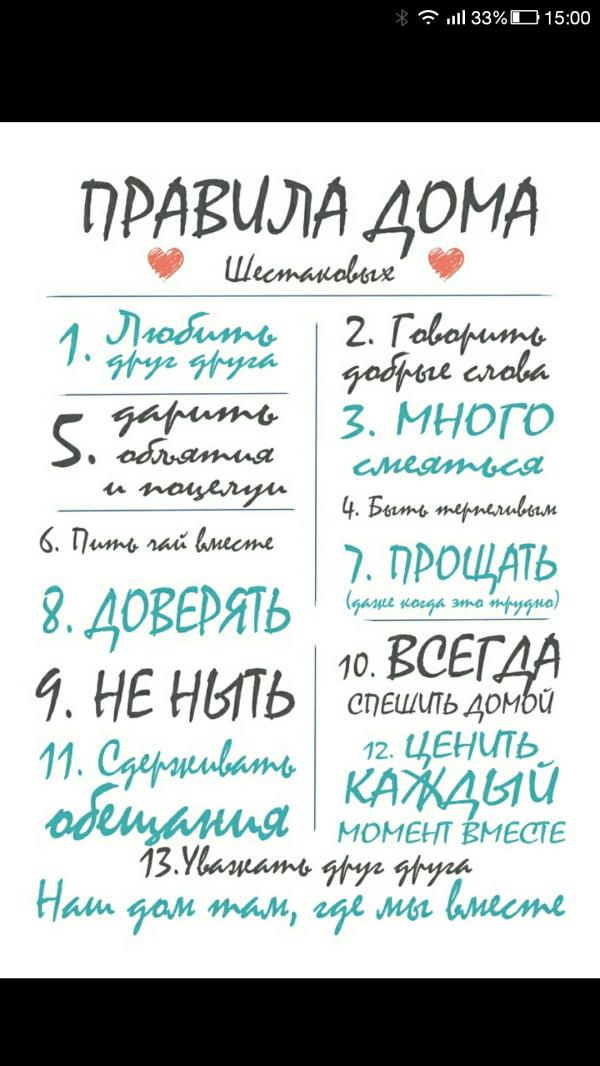 33% 15:00
ПРАВИЛА ДОМА
Шестаковых
1. Любить
друг друга
2. Говорить
добрые слова
3. МНОГО
смеяться
4. Быть терпеливым
5. дарить
объятия
и поцелуи
6. Пить чай вместе
7. ПРОЩАТЬ
(даже когда это трудно)
8. ДОВЕРЯТЬ
9. НЕ НЫТЬ
10. ВСЕГДА
СПЕШИТЬ ДОМОЙ
11. Сдерживать
обещания
12. ЦЕНИТЬ
КАЖДЫЙ
МОМЕНТ ВМЕСТЕ
13.Уважать друг друга
Наш дом там, где мы вместе